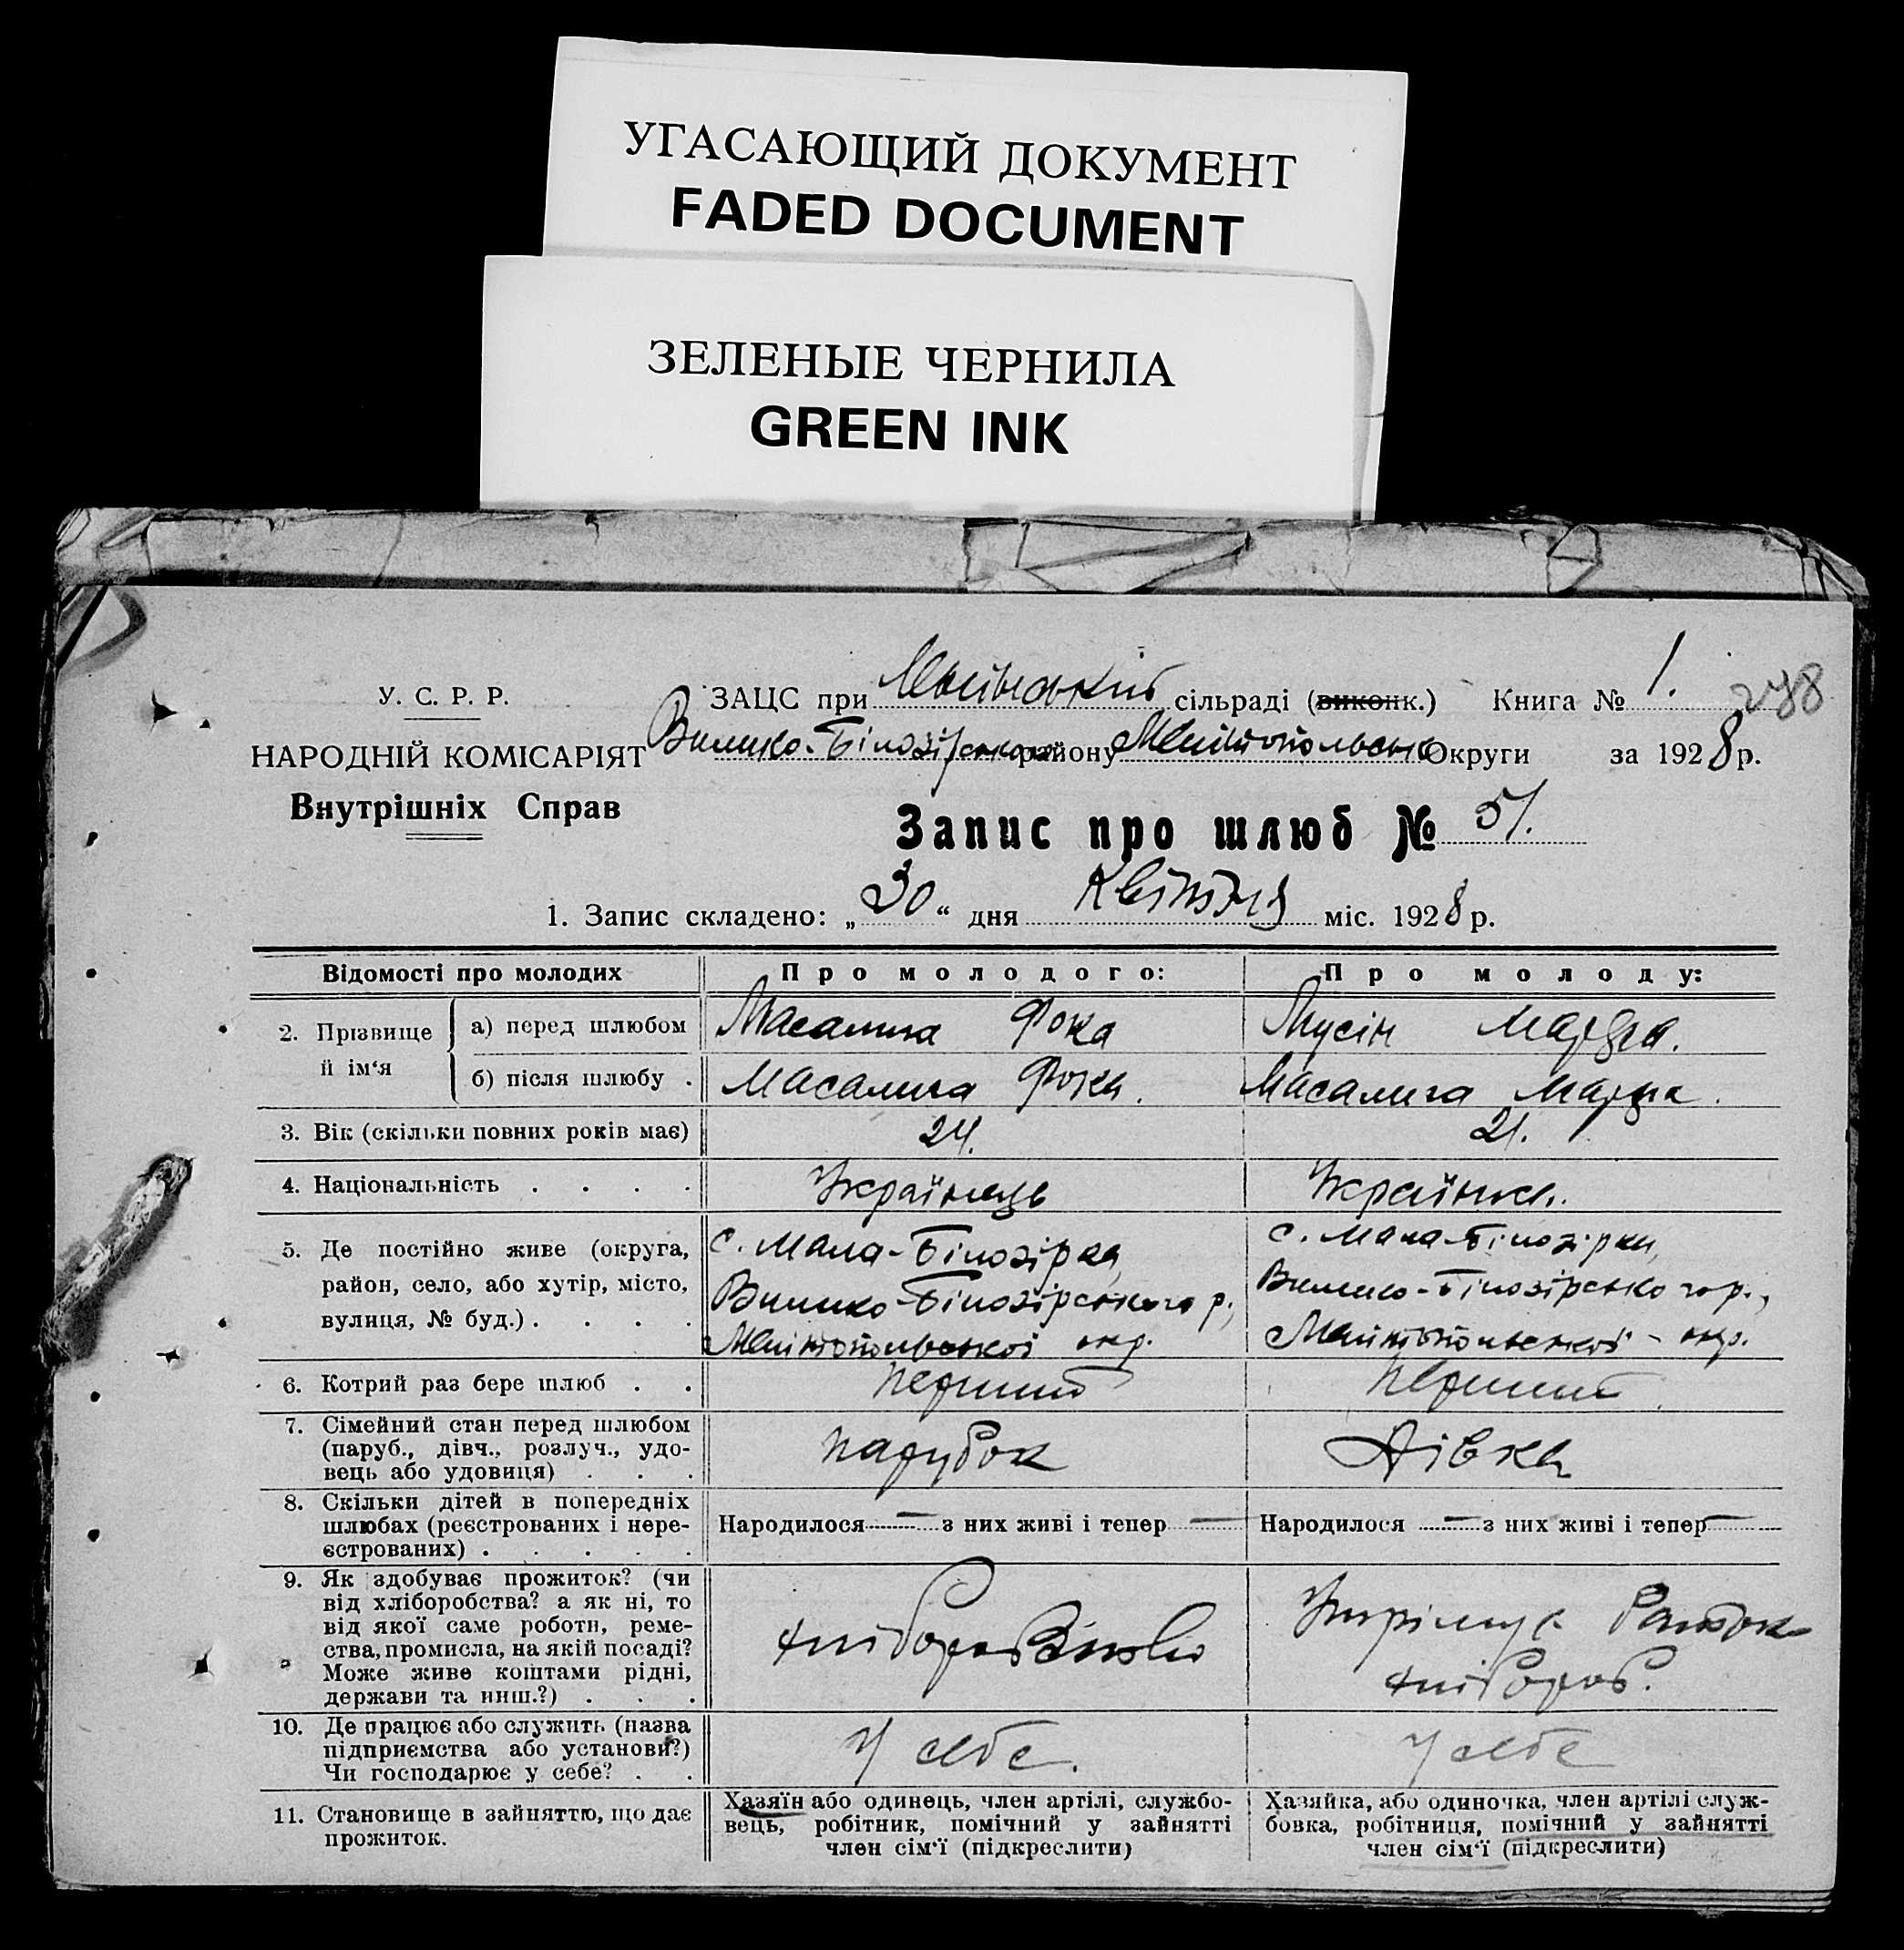 УГАСАЮЩИЙ ДОКУМЕНТ
FADED DOCUMENT
ЗЕЛЕНЫЕ ЧЕРНИЛА
GREEN INK
У. С. Р. Р.
НАРОДНІЙ КОМІСАРІЯТ
Внутрішніх Справ
ЗАЦС при сільраді (виконк.) Книга № 1. 278
Велико-Білозірського району Мелітопольськ Округи за 1928 р.
Запис про шлюб № 51.
1. Запис складено: „30“ дня Квітня міс. 1928 р.
Відомості про молодих Про молодого: Про молоду:
2. Прізвище й ім‘я а) перед шлюбом Масалига Фока Мусін Марфа.
б) після шлюбу . Масалига Фока. Масалига Марфа.
3. Вік (скільки повних років має) 24. 21.
4. Національність . . . . Українець Українка.
5. Де постійно живе (округа, район, село, або хутір, місто, вулиця, № буд.) . . . .
с. Мала-Білозірка,
Велико-Білозірського р.,
Мелітопольської окр.
с. Мала-Білозірка,
Велико-Білозірського р.,
Мелітопольської окр.
6. Котрий раз бере шлюб . . Перший Перший
7. Сімейний стан перед шлюбом
(паруб., дівч., розлуч., удо-
вець або удовиця) . . .
парубок Дівка
8. Скільки дітей в попередніх
шлюбах (реєстрованих і нере-
єстрованих) . . . . .
Народилося — з них живі і тепер — Народилося — з них живі і тепер —
9. Як здобуває прожиток? (чи
від хліборобства? а як ні, то
від якої саме роботи, реме-
ства, промисла, на якій посаді?
Може живе коштами рідні,
держави та инш.?) . . .
хліборобство
Утримує батько
хлібороб.
10. Де працює або служить (назва
підприємства або установи?)
Чи господарює у себе? . .
У себе. У себе
11. Становище в зайняттю, що дає
прожиток.
Хазяїн або одинець, член артілі, службо-
вець, робітник, помічний у зайнятті
член сім‘ї (підкреслити)
Хазяйка, або одиночка, член артілі служ-
бовка, робітниця, помічний у зайнятті
член сім‘ї (підкреслити)